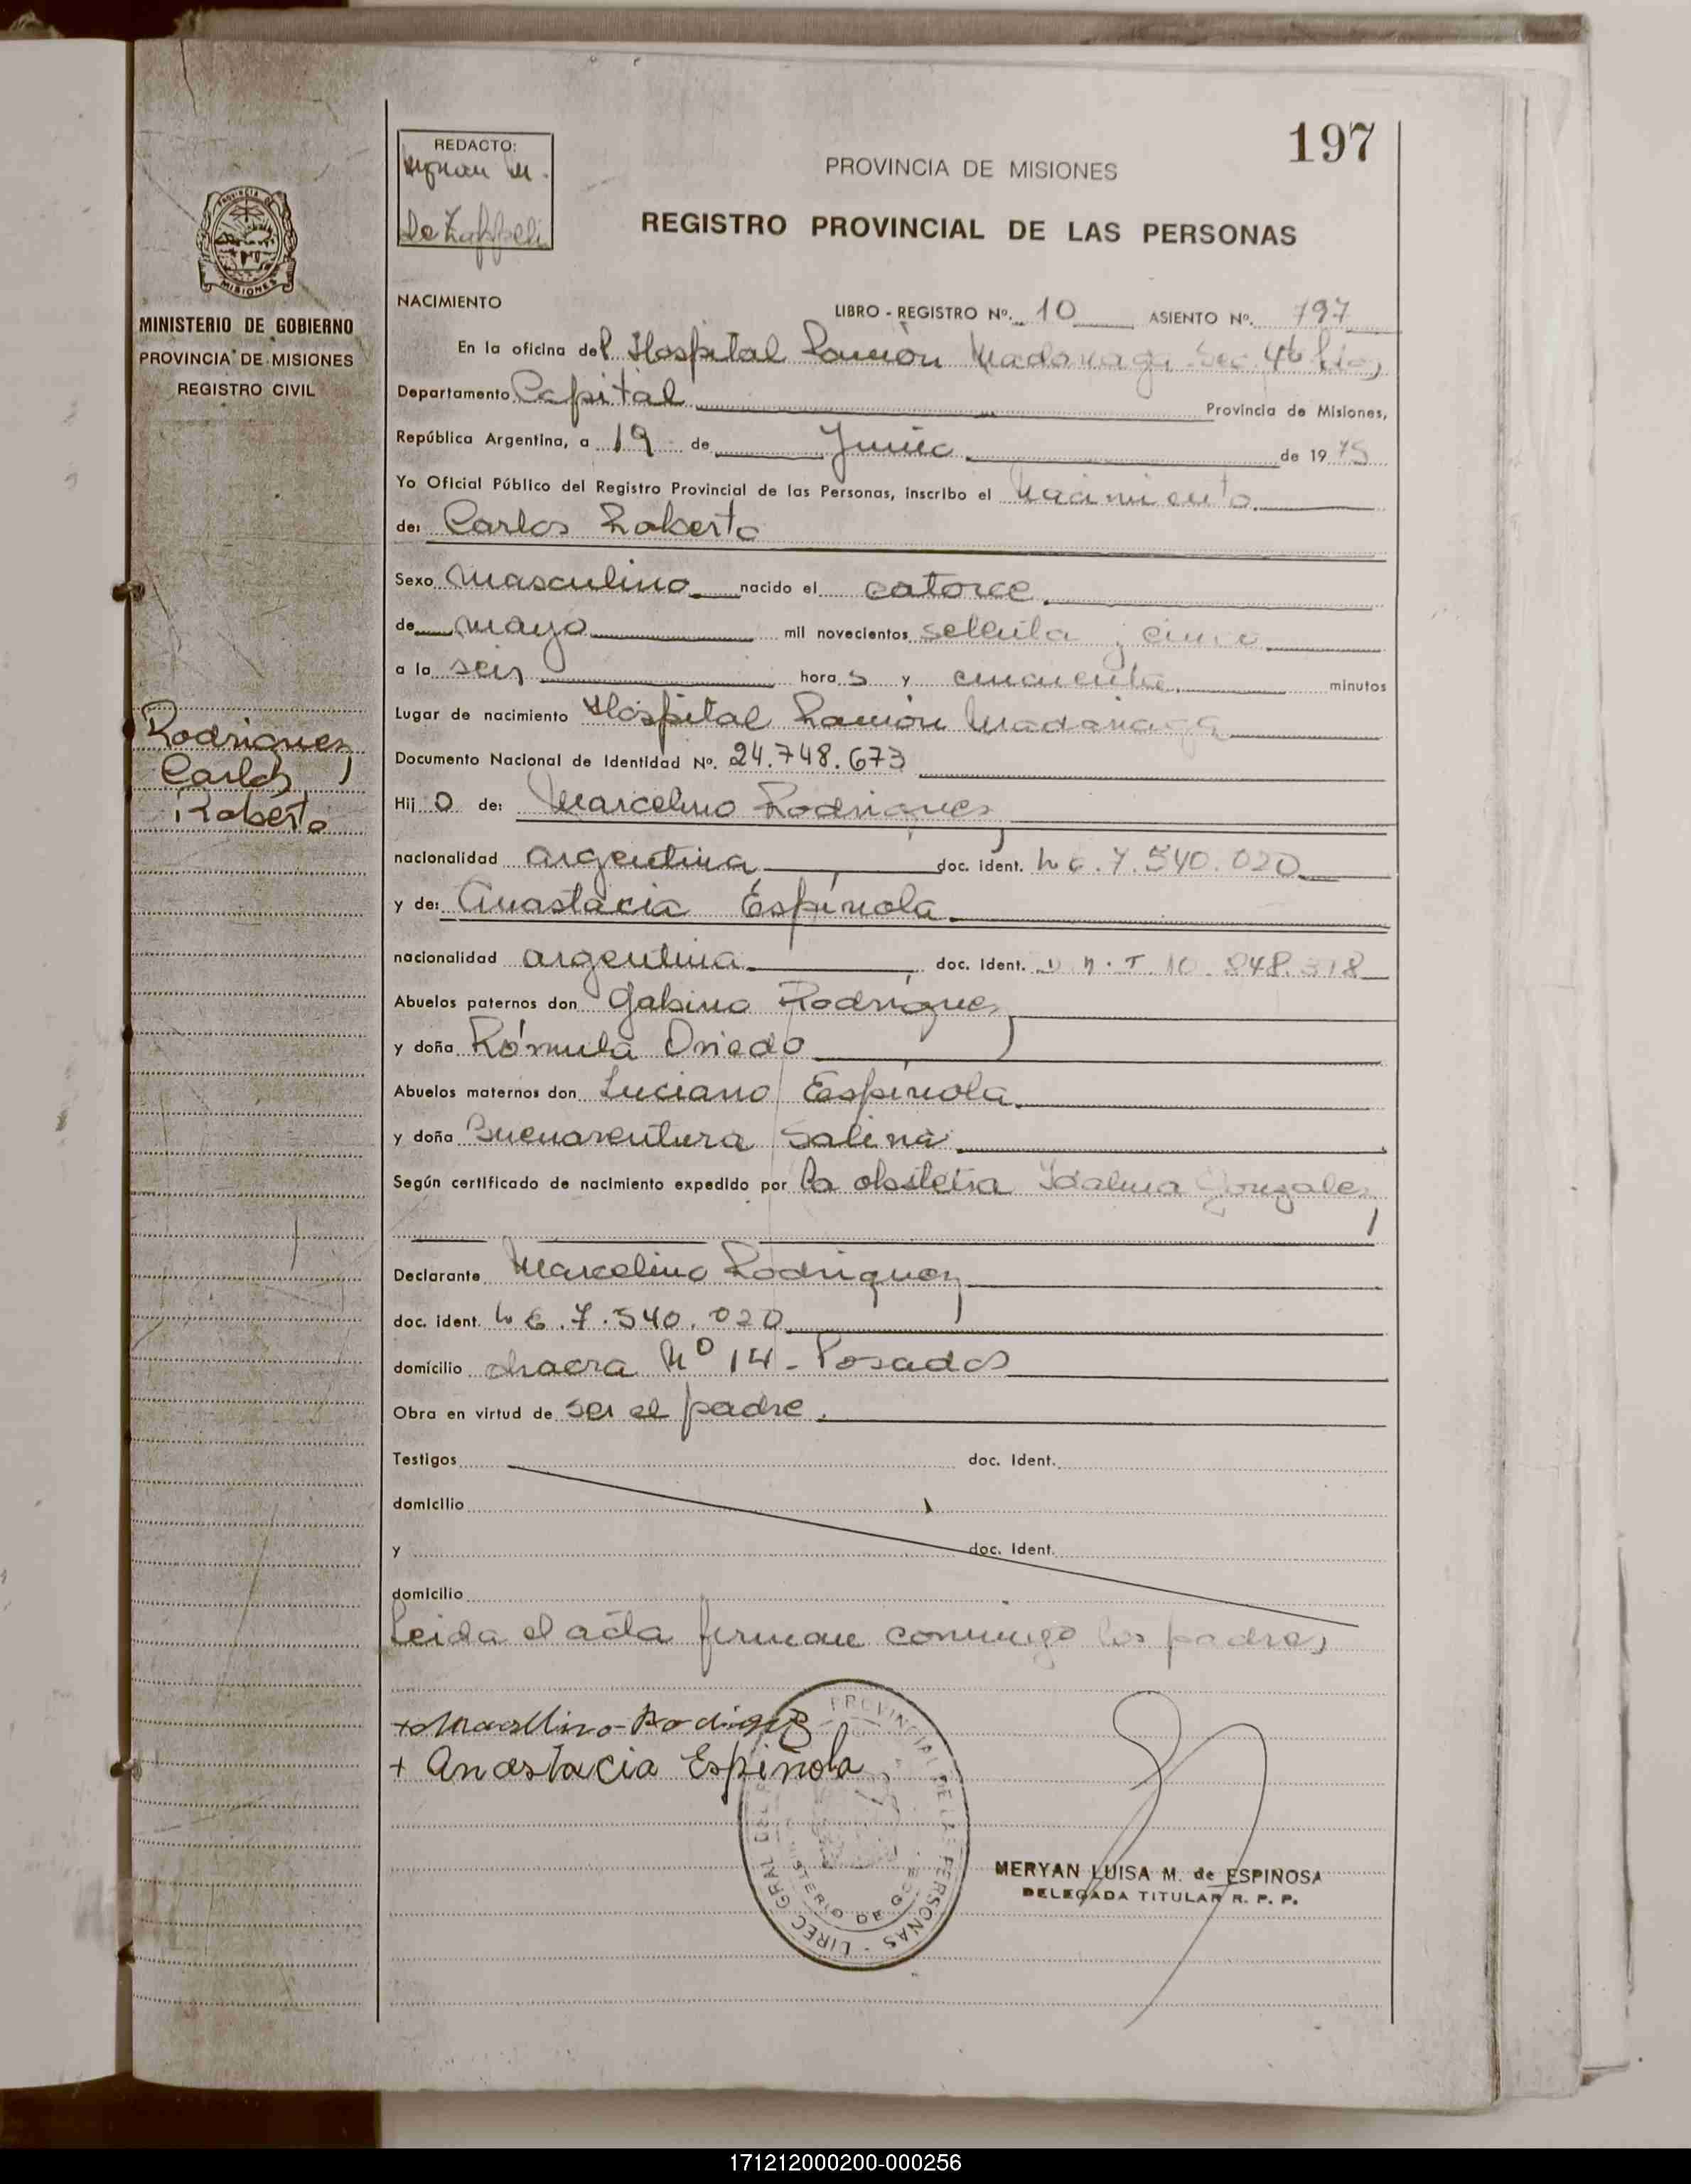 197
REDACTO:
PROVINCIA DE MISIONES
de Zappelli
REGISTRO PROVINCIAL DE LAS PERSONAS
MISIONES
MINISTERIO DE GOBIERNO
PROVINCIA DE MISIONES
REGISTRO CIVIL
NACIMIENTO
LIBRO - REGISTRO Nº. 10 ASIENTO Nº. 197
En la oficina del Hospital Ramón Madariaga Sec. 4ta
Departamento Capital Provincia de Misiones,
República Argentina, a 19 de Junio de 1975
Yo Oficial Público del Registro Provincial de las Personas, inscribo el nacimiento
de: Carlos Roberto
Sexo masculino nacido el catorce
de mayo mil novecientos setenta y cinco
a la seis hora s y cincuenta minutos
Lugar de nacimiento Hospital Ramón Madariaga
Documento Nacional de Identidad Nº. 24.748.673
Rodriguez
Carlos
Roberto
Hij o de: Marcelino Rodriguez
nacionalidad argentina doc. ident. L E. 7.540.020
y de: Anastacia Espínola
nacionalidad argentina doc. Ident. D.N.I. 10.848.318
Abuelos paternos don Gabino Rodríguez
y doña Rómula Oviedo
Abuelos maternos don Luciano Espínola
y doña Buenaventura Salina
Según certificado de nacimiento expedido por la obstetra Idalina Gonzalez
Declarante Marcelino Rodriguez
doc. ident. L E. 7.540.020
domicilio chacra Nº 14 - Posadas
Obra en virtud de ser el padre.
Testigos doc. Ident.
domicilio
y doc. Ident.
domicilio
Leida el acta firman conmigo los padres
+ Marcelino Rodriguez
+ Anastacia Espinola
PROVINCIAL DE LAS PERSONAS - DIREC. GRAL. DEL R
MINISTERIO DE GOB
MERYAN LUISA M. de ESPINOSA
DELEGADA TITULAR R. P. P.
171212000200-000256